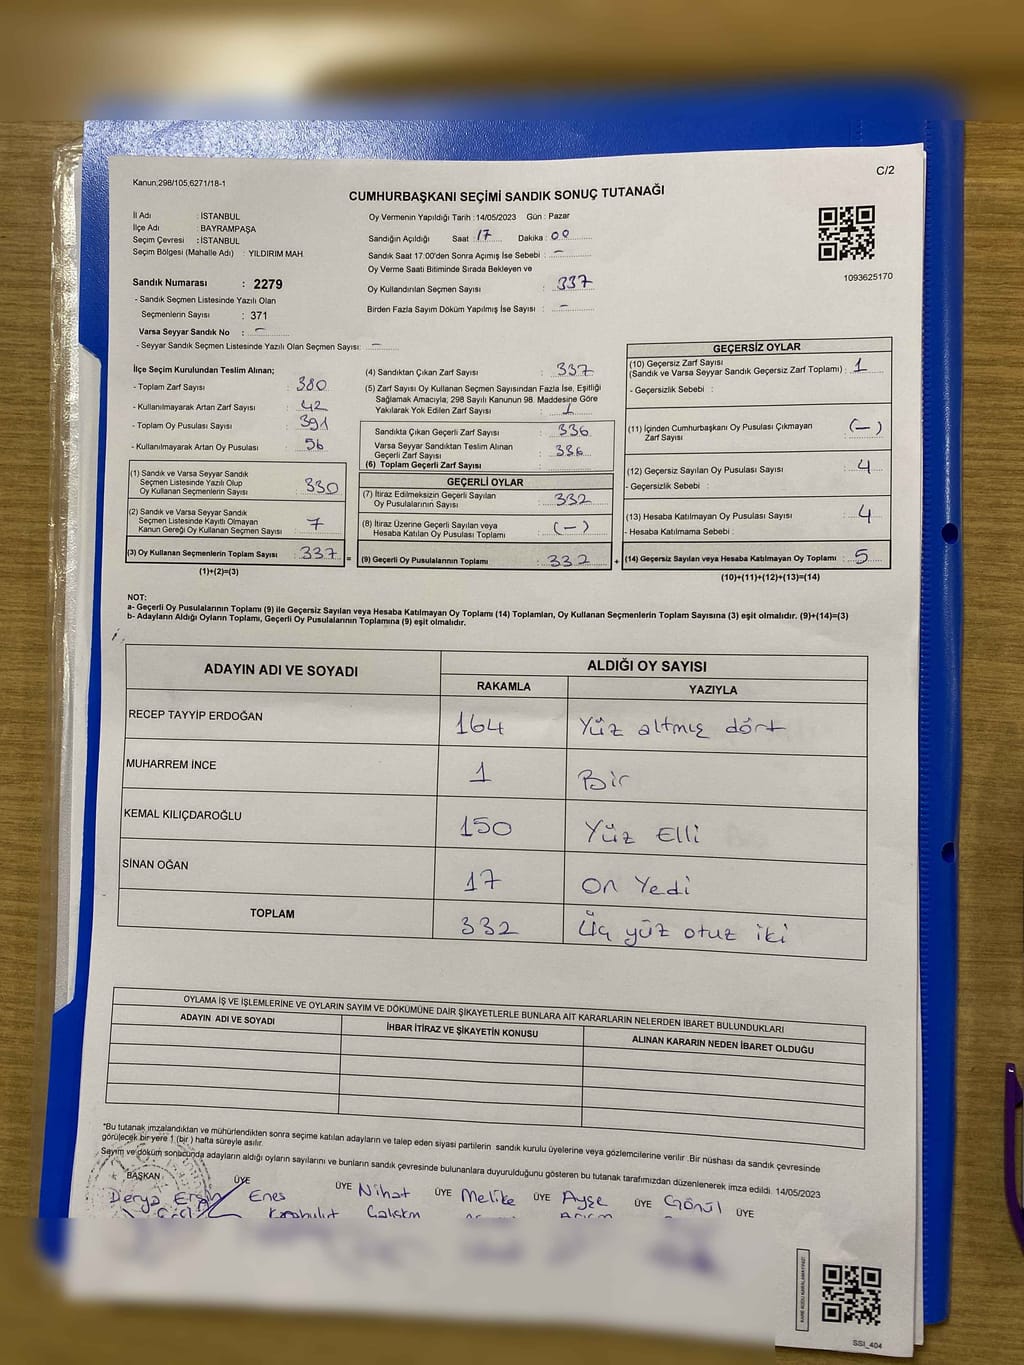 C/2
Kanun;298/105,6271/18-1
CUMHURBAŞKANI SEÇİMİ SANDIK SONUÇ TUTANAĞI
İl Adı : İSTANBUL
İlçe Adı : BAYRAMPAŞA
Seçim Çevresi : İSTANBUL
Seçim Bölgesi (Mahalle Adı) : YILDIRIM MAH.
Oy Vermenin Yapıldığı Tarih : 14/05/2023 Gün : Pazar
Sandığın Açıldığı Saat : 17 Dakika : 00
Sandık Saat 17:00'den Sonra Açımış İse Sebebi : -
Oy Verme Saati Bitiminde Sırada Bekleyen ve
Oy Kullandırılan Seçmen Sayısı : 337
Birden Fazla Sayım Döküm Yapılmış İse Sayısı : -
1093625170
Sandık Numarası : 2279
- Sandık Seçmen Listesinde Yazılı Olan
Seçmenlerin Sayısı : 371
Varsa Seyyar Sandık No : -
- Seyyar Sandık Seçmen Listesinde Yazılı Olan Seçmen Sayısı: -
İlçe Seçim Kurulundan Teslim Alınan;
- Toplam Zarf Sayısı : 380
- Kullanılmayarak Artan Zarf Sayısı : 42
- Toplam Oy Pusulası : 391
- Kullanılmayarak Artan Oy Pusulası : 56
(1) Sandık ve Varsa Seyyar Sandık
Seçmen Listesinde Yazılı Olup
Oy Kullanan Seçmenlerin Sayısı : 330
(2) Sandık ve Varsa Seyyar Sandık
Seçmen Listesinde Kayıtlı Olmayan
Kanun Gereği Oy Kullanan Seçmen Sayısı : 7
(3) Oy Kullanan Seçmenlerin Toplam Sayısı : 337 =
(1)+(2)=(3)
(4) Sandıktan Çıkan Zarf Sayısı : 337
(5) Zarf Sayısı Oy Kullanan Seçmen Sayısından Fazla İse, Eşitliği
Sağlamak Amacıyla, 298 Sayılı Kanunun 98. Maddesine Göre
Yakılarak Yok Edilen Zarf Sayısı : 1
Sandıkta Çıkan Geçerli Zarf Sayısı : 336
Varsa Seyyar Sandıktan Teslim Alınan
Geçerli Zarf Sayısı : 336
(6) Toplam Geçerli Zarf Sayısı :
GEÇERLİ OYLAR
(7) İtiraz Edilmeksizin Geçerli Sayılan
Oy Pusulalarının Sayısı : 332
(8) İtiraz Üzerine Geçerli Sayılan veya
Hesaba Katılan Oy Pusulaları Toplamı : (-)
(9) Geçerli Oy Pusulalarının Toplamı : 332 +
GEÇERSİZ OYLAR
(10) Geçersiz Zarf Sayısı
(Sandık ve Varsa Seyyar Sandık Geçersiz Zarf Toplamı) : 1
- Geçersizlik Sebebi :
(11) İçinden Cumhurbaşkanı Oy Pusulası Çıkmayan
Zarf Sayısı : (-)
(12) Geçersiz Sayılan Oy Pusulası Sayısı : 4
- Geçersizlik Sebebi :
(13) Hesaba Katılmayan Oy Pusulası Sayısı : 4
- Hesaba Katılmama Sebebi :
(14) Geçersiz Sayılan veya Hesaba Katılmayan Oy Toplamı : 5
(10)+(11)+(12)+(13)=(14)
NOT:
a- Geçerli Oy Pusulalarının Toplamı (9) ile Geçersiz Sayılan veya Hesaba Katılmayan Oy Toplamı (14) Toplamları, Oy Kullanan Seçmenlerin Toplam Sayısına (3) eşit olmalıdır. (9)+(14)=(3)
b- Adayların Aldığı Oyların Toplamı, Geçerli Oy Pusulalarının Toplamına (9) eşit olmalıdır.
ADAYIN ADI VE SOYADI ALDIĞI OY SAYISI
RAKAMLA YAZIYLA
RECEP TAYYİP ERDOĞAN 164 Yüz altmış dört
MUHARREM İNCE 1 Bir
KEMAL KILIÇDAROĞLU 150 Yüz Elli
SİNAN OĞAN 17 On Yedi
TOPLAM 332 Üç yüz otuz iki
OYLAMA İŞ VE İŞLEMLERİNE VE OYLARIN SAYIM VE DÖKÜMÜNE DAİR ŞİKAYETLERLE BUNLARA AİT KARARLARIN NELERDEN İBARET BULUNDUKLARI
ADAYIN ADI VE SOYADI İHBAR İTİRAZ VE ŞİKAYETİN KONUSU ALINAN KARARIN NEDEN İBARET OLDUĞU
*Bu tutanak imzalandıktan ve mühürlendikten sonra seçime katılan adayların ve talep eden siyasi partilerin sandık kurulu üyelerine veya gözlemcilerine verilir .Bir nüshası da sandık çevresinde
görülecek bir yere 1 (bir ) hafta süreyle asılır.
Sayım ve döküm sonucunda adayların aldığı oyların sayılarını ve bunların sandık çevresinde bulunanlara duyurulduğunu gösteren bu tutanak tarafımızdan düzenlenerek imza edildi. 14/05/2023
BAŞKAN ÜYE ÜYE ÜYE ÜYE ÜYE ÜYE
Derya Enes Nihat Melike Ayşe Gönül
Karabulut Çalışkan
SSI_404